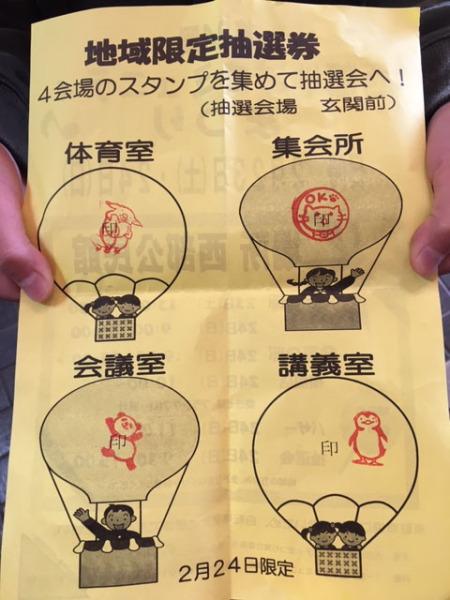 地域限定抽選券
4会場のスタンプを集めて抽選会へ!
(抽選会場 玄関前)
体育室 集会所
印 OK 印
会議室 講義室
印 印
2月24日限定